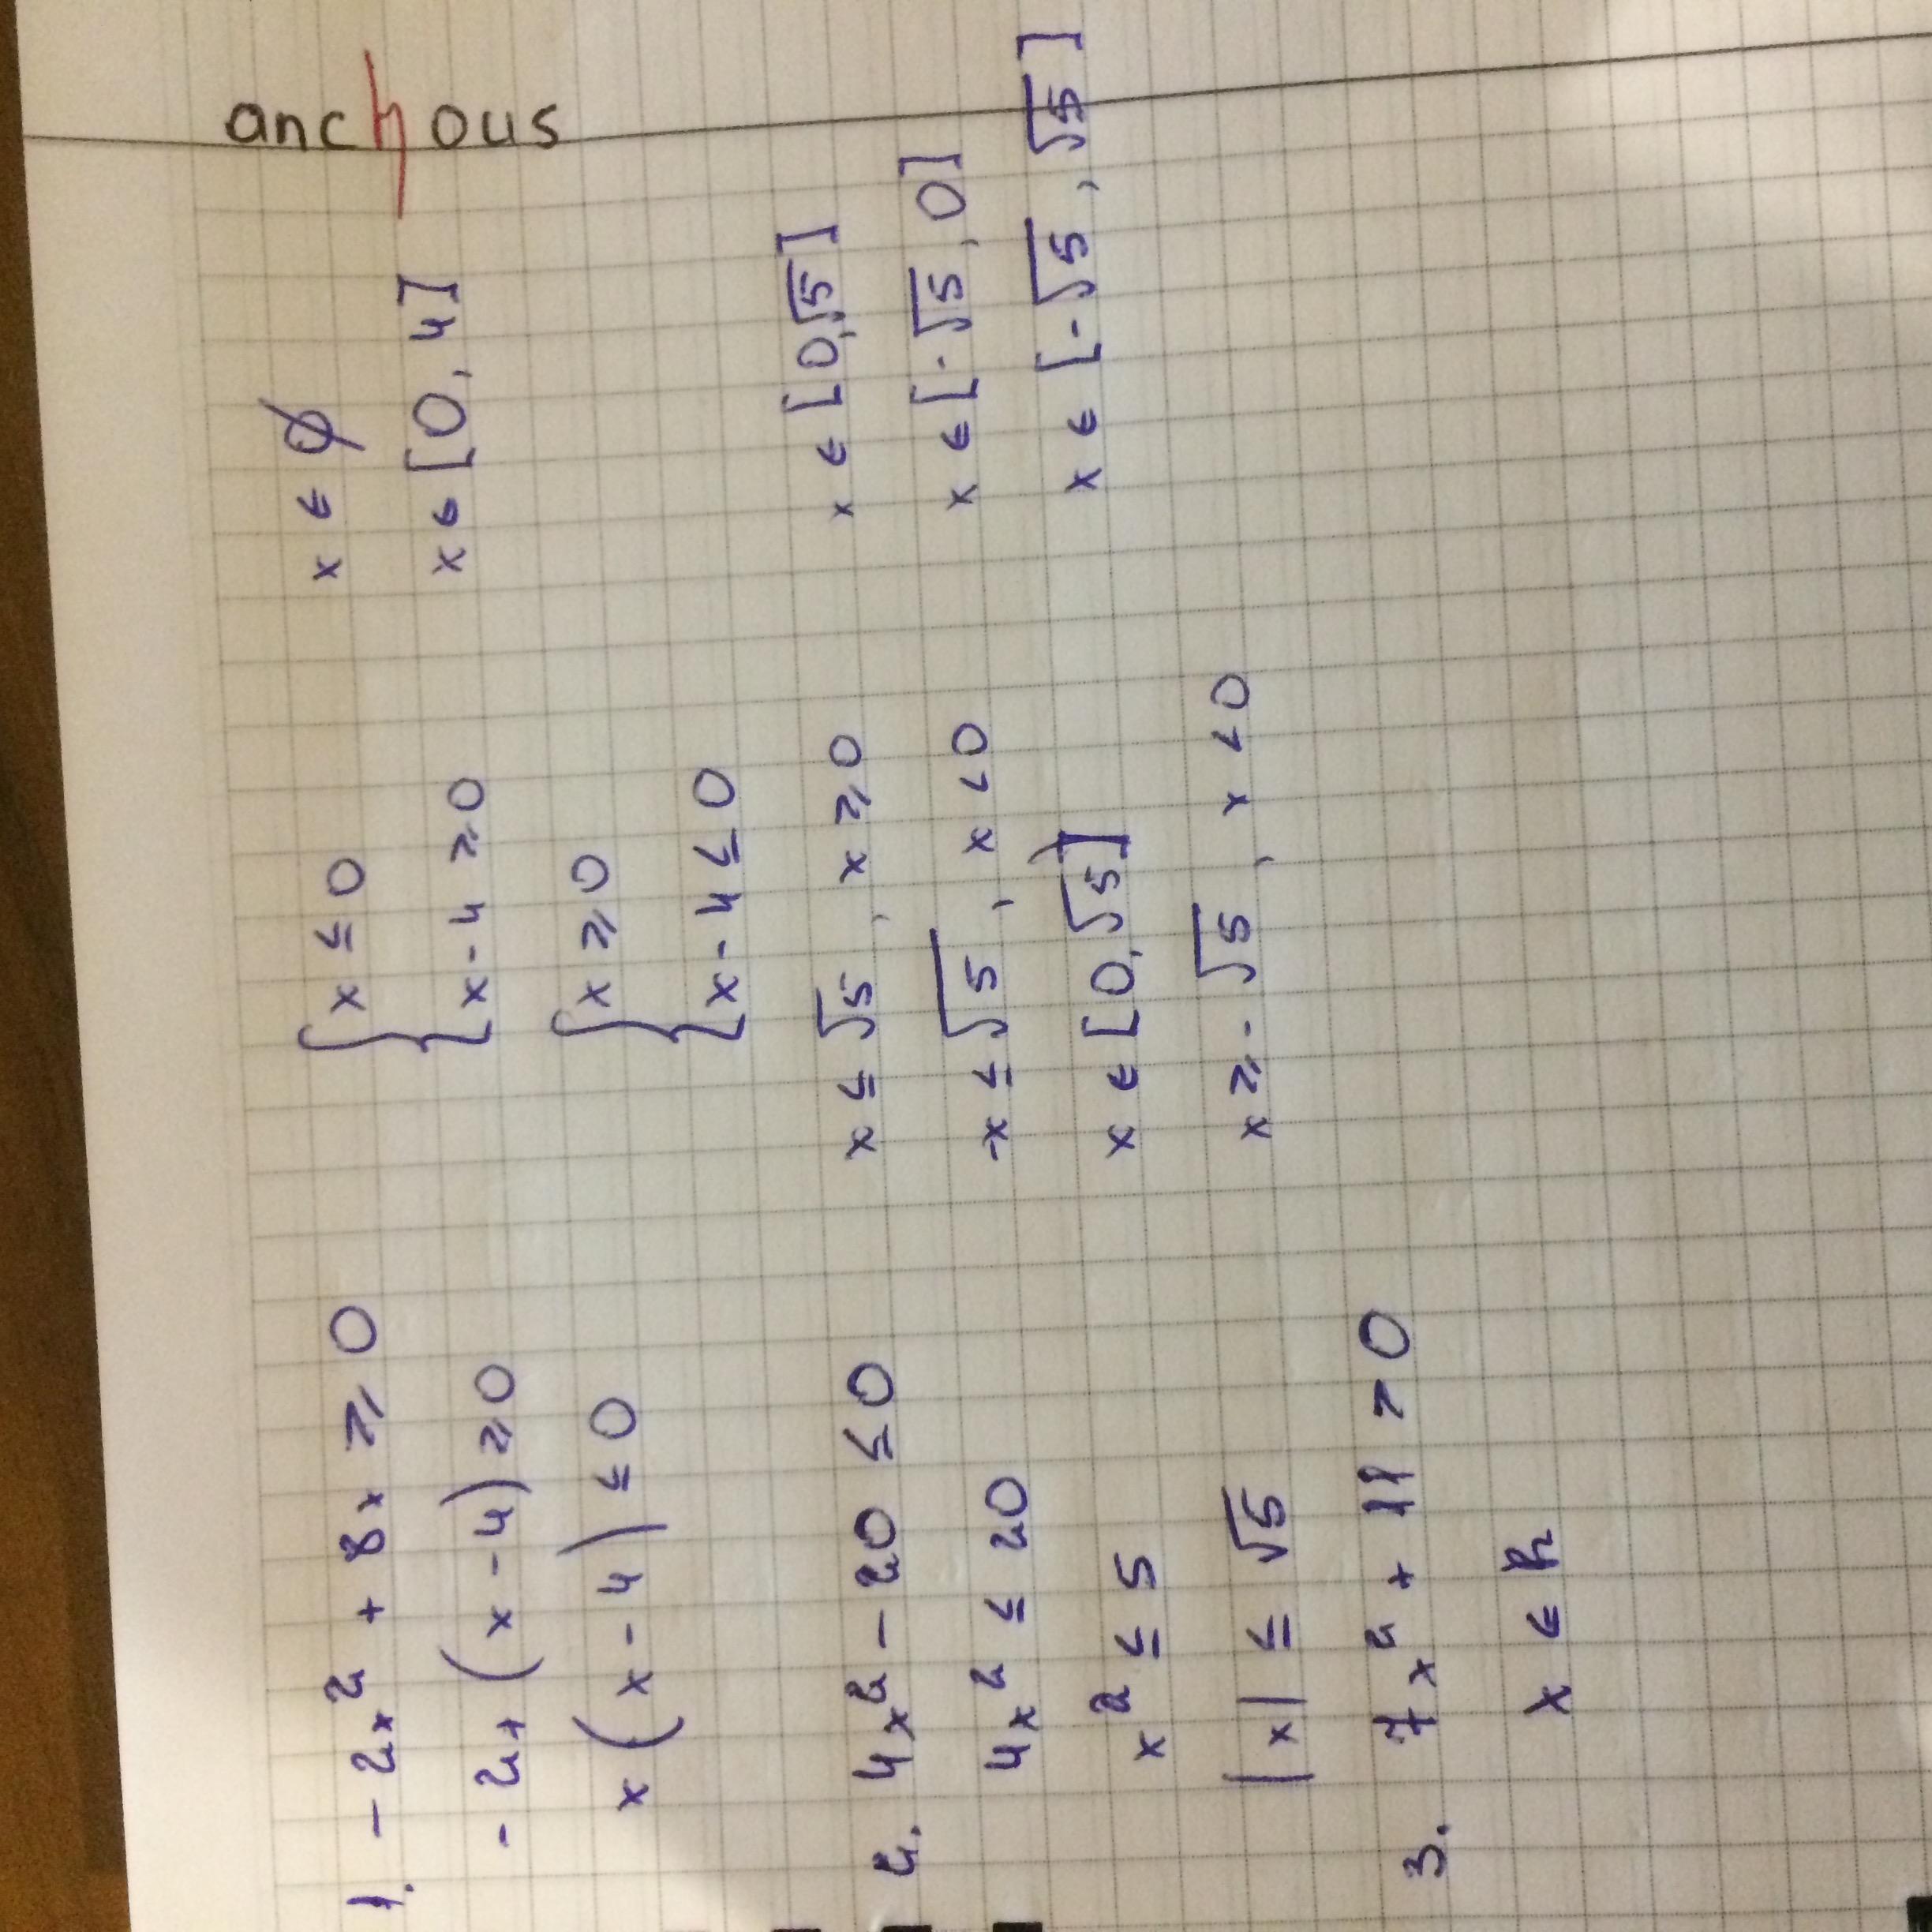 anchous
1. - 2x² + 8x ⩾ 0
- 2x (x - 4) ⩾ 0
x (x - 4) ≤ 0
{ x ≤ 0
x - 4 ⩾ 0
{ x ⩾ 0
x - 4 ≤ 0
x ∈ ∅
x ∈ [0, 4]
2. 4x² - 20 ≤ 0
4x² ≤ 20
x² ≤ 5
|x| ≤ √5
x ≤ √5, x ⩾ 0
-x ≤ √5, x < 0
x ∈ [0, √5]
x ⩾ - √5, x < 0
x ∈ [0,√5]
x ∈ [-√5, 0]
x ∈ [-√5, √5]
3. 7x² + 11 > 0
x ∈ R